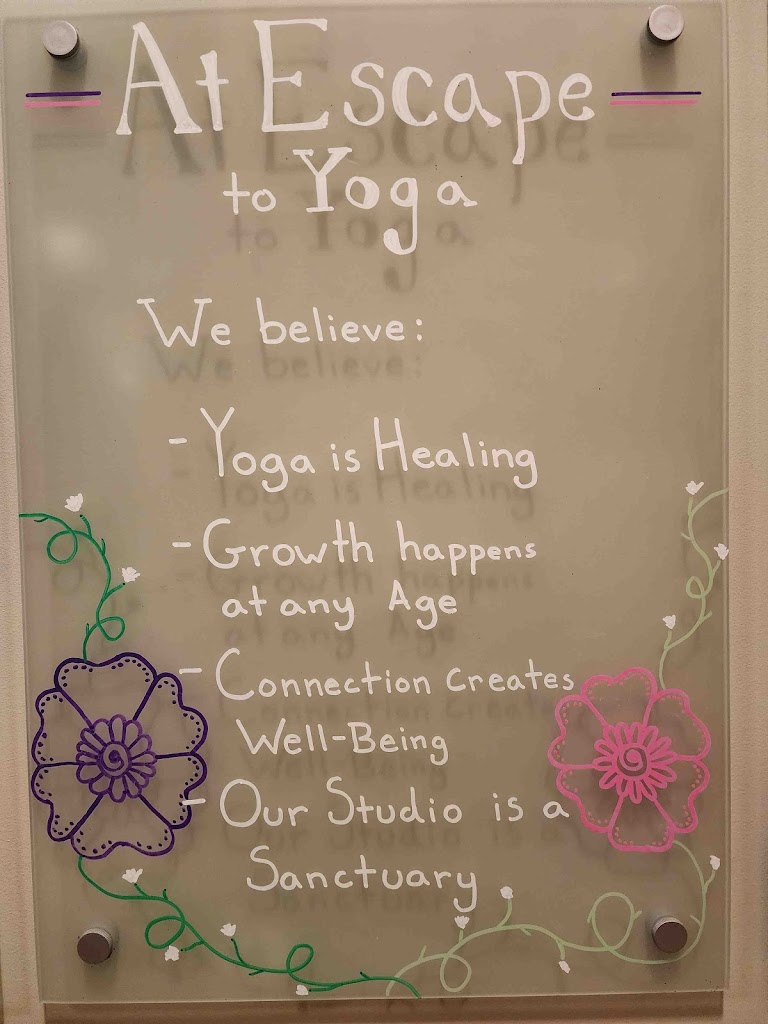 At Escape
to Yoga
We believe:
- Yoga is Healing
- Growth happens
at any Age
- Connection creates
Well-Being
- Our Studio is a
Sanctuary